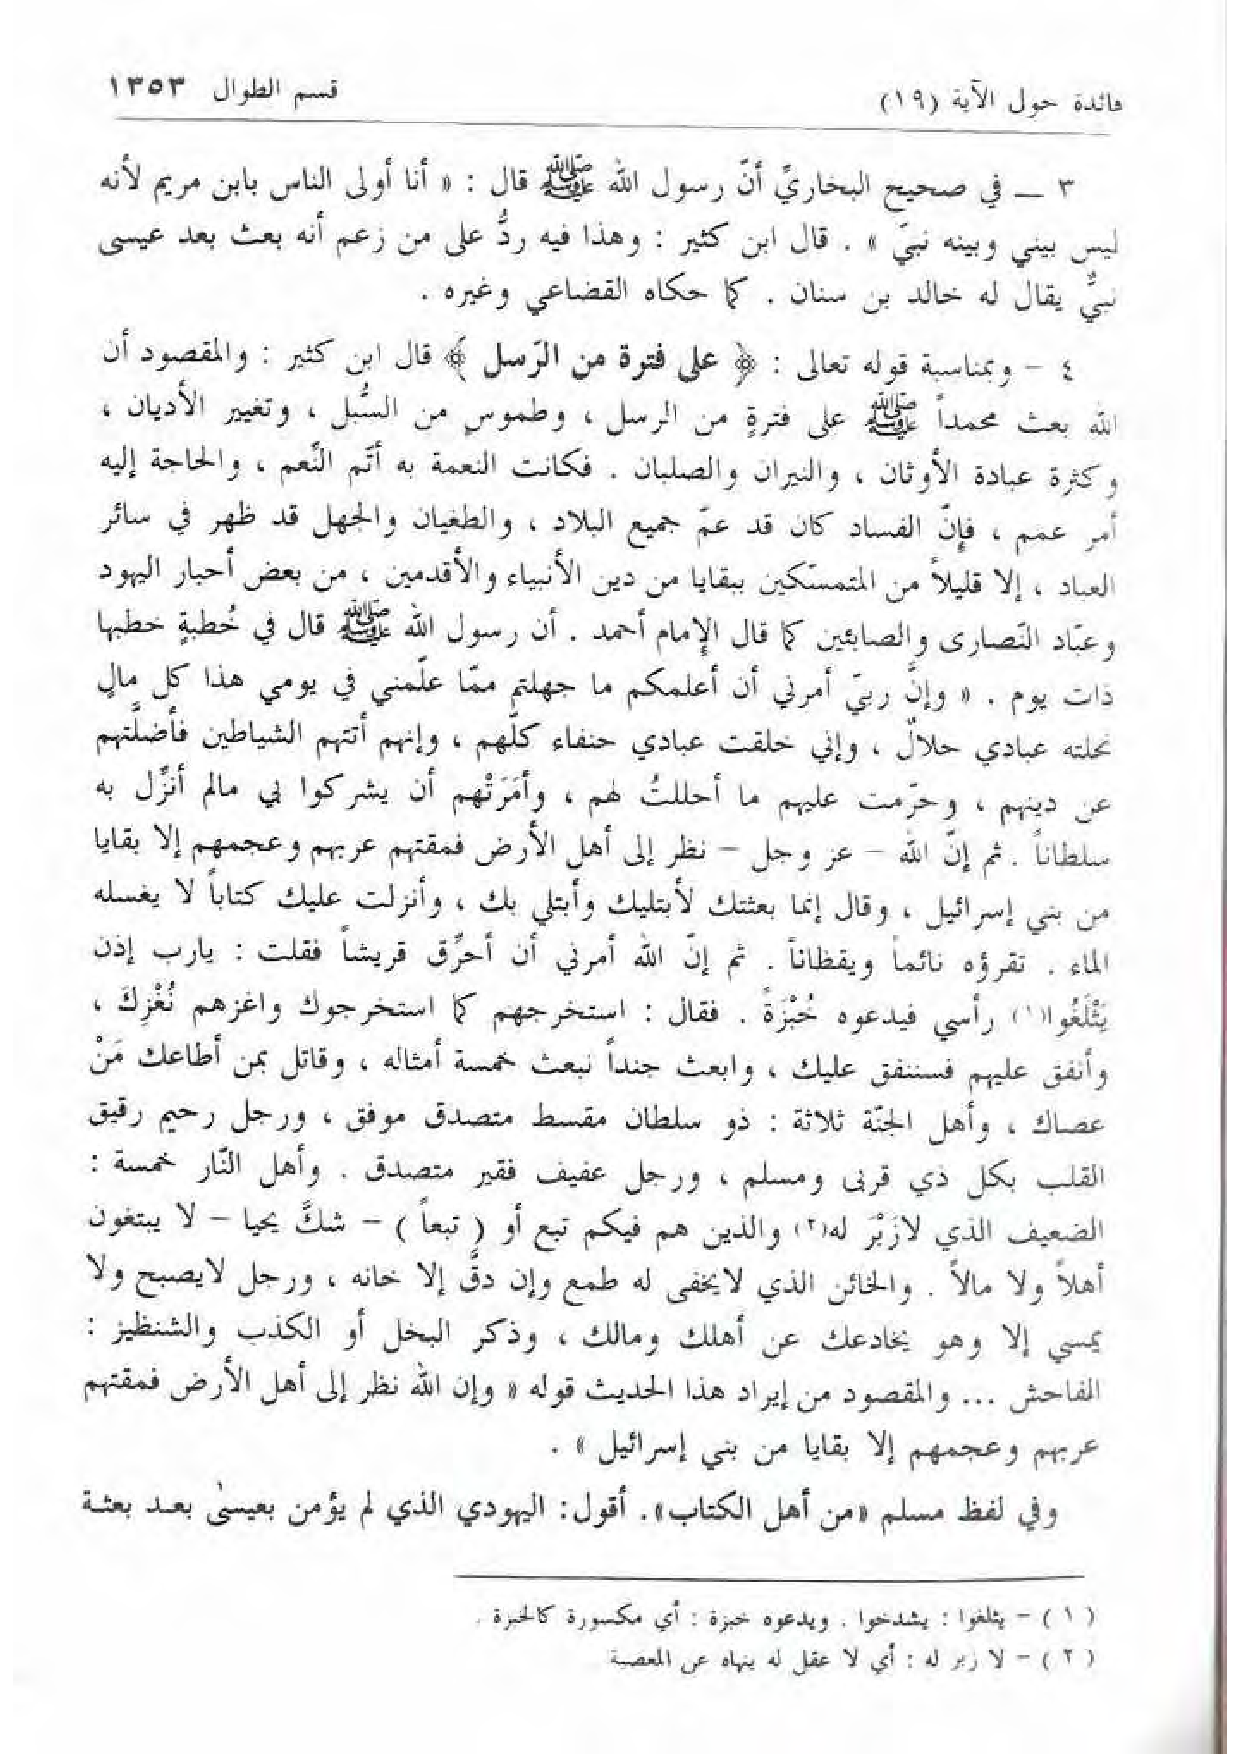 فائدة حول الآية (١٩)
قسم الطوال ١٣٥٣
٣ ــ في صحيح البخاريّ أنّ رسول الله ﷺ قال : « أنا أولى الناس بابن مريم لأنه
ليس بيني وبينه نبيّ » . قال ابن كثير : وهذا فيه ردُّ على من زعم أنه بعث بعد عيسى
نبيٌّ يقال له خالد بن سنان . كما حكاه القضاعي وغيره .
٤ – وبمناسبة قوله تعالى : ﴿ على فترة من الرّسل ﴾ قال ابن كثير : والمقصود أن
الله بعث محمداً ﷺ على فترةٍ من الرسل ، وطموس من السُّبل ، وتغيير الأديان ،
وكثرة عبادة الأوثان ، والنيران والصلبان . فكانت النعمة به أتّم النِّعم ، والحاجة إليه
أمر عمم ، فإنّ الفساد كان قد عمّ جميع البلاد ، والطغيان والجهل قد ظهر في سائر
العباد ، إلا قليلاً من المتمسّكين ببقايا من دين الأنبياء والأقدمين ، من بعض أحبار اليهود
وعبّاد النّصارى والصابئين كما قال الإمام أحمد . أن رسول الله ﷺ قال في خُطبةٍ خطبها
ذات يوم . « وإنَّ ربيّ أمرني أن أعلمكم ما جهلتم ممّا علّمني في يومي هذا كل مالٍ
نحلته عبادي حلالٌ ، وإني خلقت عبادي حنفاء كلّهم ، وإنهم أتتهم الشياطين فأضلّتهم
عن دينهم ، وحرّمت عليهم ما أحللتُ لهم ، وأمَرَتْهم أن يشركوا بي مالم أنزِّل به
سلطاناً . ثم إنّ الله – عز وجل – نظر إلى أهل الأرض فمقتهم عربهم وعجمهم إلا بقايا
من بني إسرائيل ، وقال إنما بعثتك لأبتليك وأبتلي بك ، وأنزلت عليك كتاباً لا يغسله
الماء . تقرؤه نائماً ويقظاناً . ثم إنّ الله أمرني أن أحرِّق قريشاً فقلت : يارب إذن
يَثْلَغُوا(١) رأسي فيدعوه خُبْزَةً . فقال : استخرجهم كما استخرجوك واغزهم نُغْزِكَ ،
وأنفق عليهم فسننفق عليك ، وابعث جنداً نبعث خمسة أمثاله ، وقاتل بمن أطاعك مَنْ
عصاك ، وأهل الجنّة ثلاثة : ذو سلطان مقسط متصدق موفق ، ورجل رحيم رقيق
القلب بكل ذي قربى ومسلم ، ورجل عفيف فقير متصدق . وأهل النّار خمسة :
الضعيف الذي لازَبْرَ له(٢) والذين هم فيكم تبع أو ( تبعاً ) – شكَّ يحيا – لا يبتغون
أهلاً ولا مالاً . والخائن الذي لايخفى له طمع وإن دقَّ إلا خانه ، ورجل لايصبح ولا
يمسي إلا وهو يخادعك عن أهلك ومالك ، وذكر البخل أو الكذب والشنظيز :
الفاحش ... والمقصود من إيراد هذا الحديث قوله « وإن الله نظر إلى أهل الأرض فمقتهم
عربهم وعجمهم إلا بقايا من بني إسرائيل » .
وفي لفظ مسلم «من أهل الكتاب». أقول: اليهودي الذي لم يؤمن بعيسىٰ بعد بعثة
( ١ ) – يثلغوا : يشدخوا . ويدعوه خبزة : أي مكسورة كالخبزة .
( ٢ ) – لا زبر له : أي لا عقل له ينهاه عن المعصية